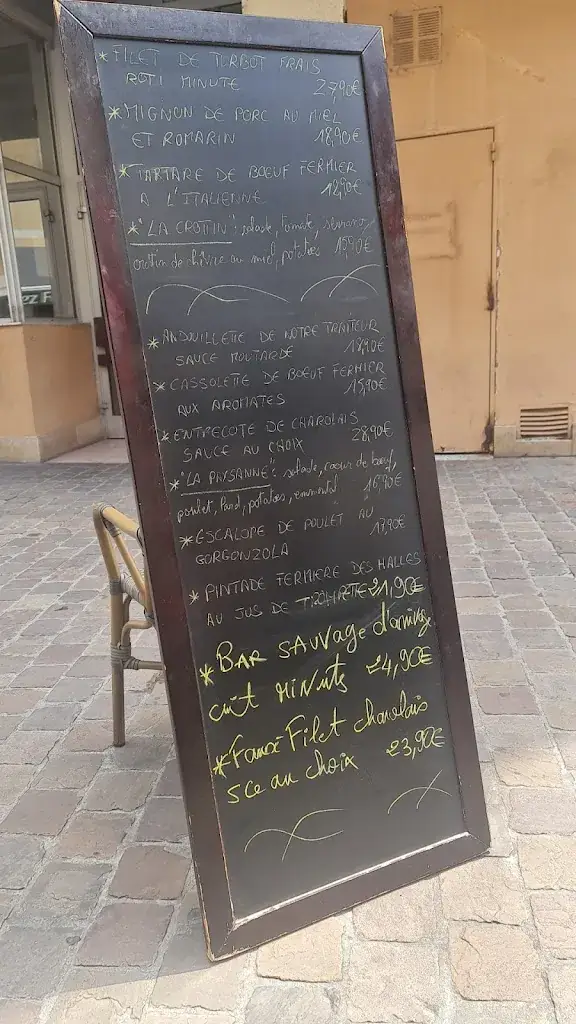 * FILET DE TURBOT FRAIS
ROTI MINUTE 27,90€
* MIGNON DE PORC AU MIEL
ET ROMARIN 18,90€
* TARTARE DE BŒUF FERMIER
A L'ITALIENNE 18,90€
* "LA CROTTIN": salade, tomate, serrano,
crottin de chèvre au miel, potatoes 15,90€
* ANDOUILLETTE DE NOTRE TRAITEUR
SAUCE MOUTARDE 18,90€
* CASSOLETTE DE BOEUF FERMIER
AUX AROMATES 15,90€
* ENTRECOTE DE CHAROLAIS
SAUCE AU CHOIX 28,90€
* "LA PAYSANNE": salade, coeur de bœuf,
poulet, lard, potatoes, emmental 16,90€
* ESCALOPE DE POULET AU
GORGONZOLA 17,90€
* PINTADE FERMIERE DES HALLES
AU JUS DE 21,90€
* BAR SAUVAGE d'
cuit MiNute 24,90€
* Faux Filet charolais
sce au choix 23,90€